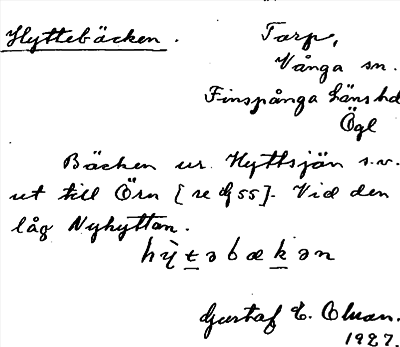 Hyttebäcken.
Torp,
Vånga sn.
Finspånga läns hd
Ögl
Bäcken ur Hyttsjön s.v.
ut till Örn [se 55]. Vid den
låg Nyhyttan.
hy̆təbækən
Gustaf E. Olsson.
1927.